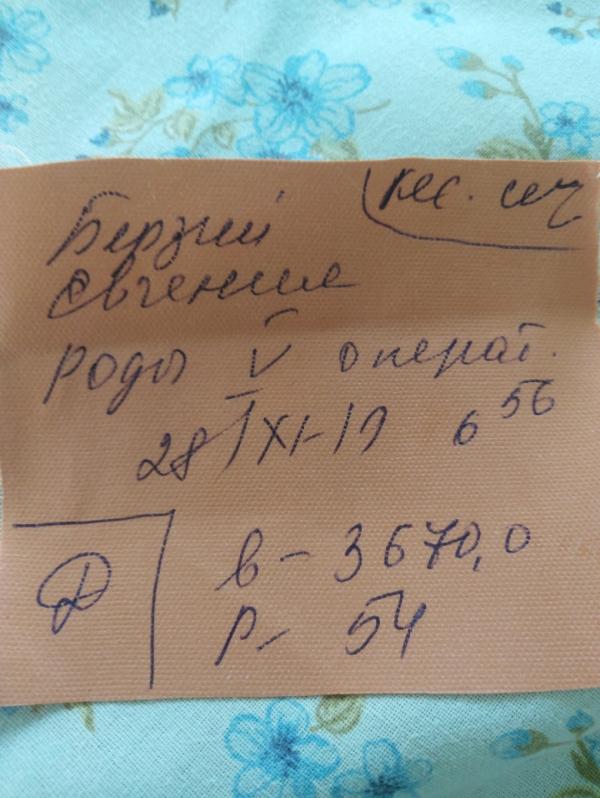 кес. сеч
Берзий
Евгения
роды V операт.
28/XI-19 6 56
Д
в- 3670,0
р- 54